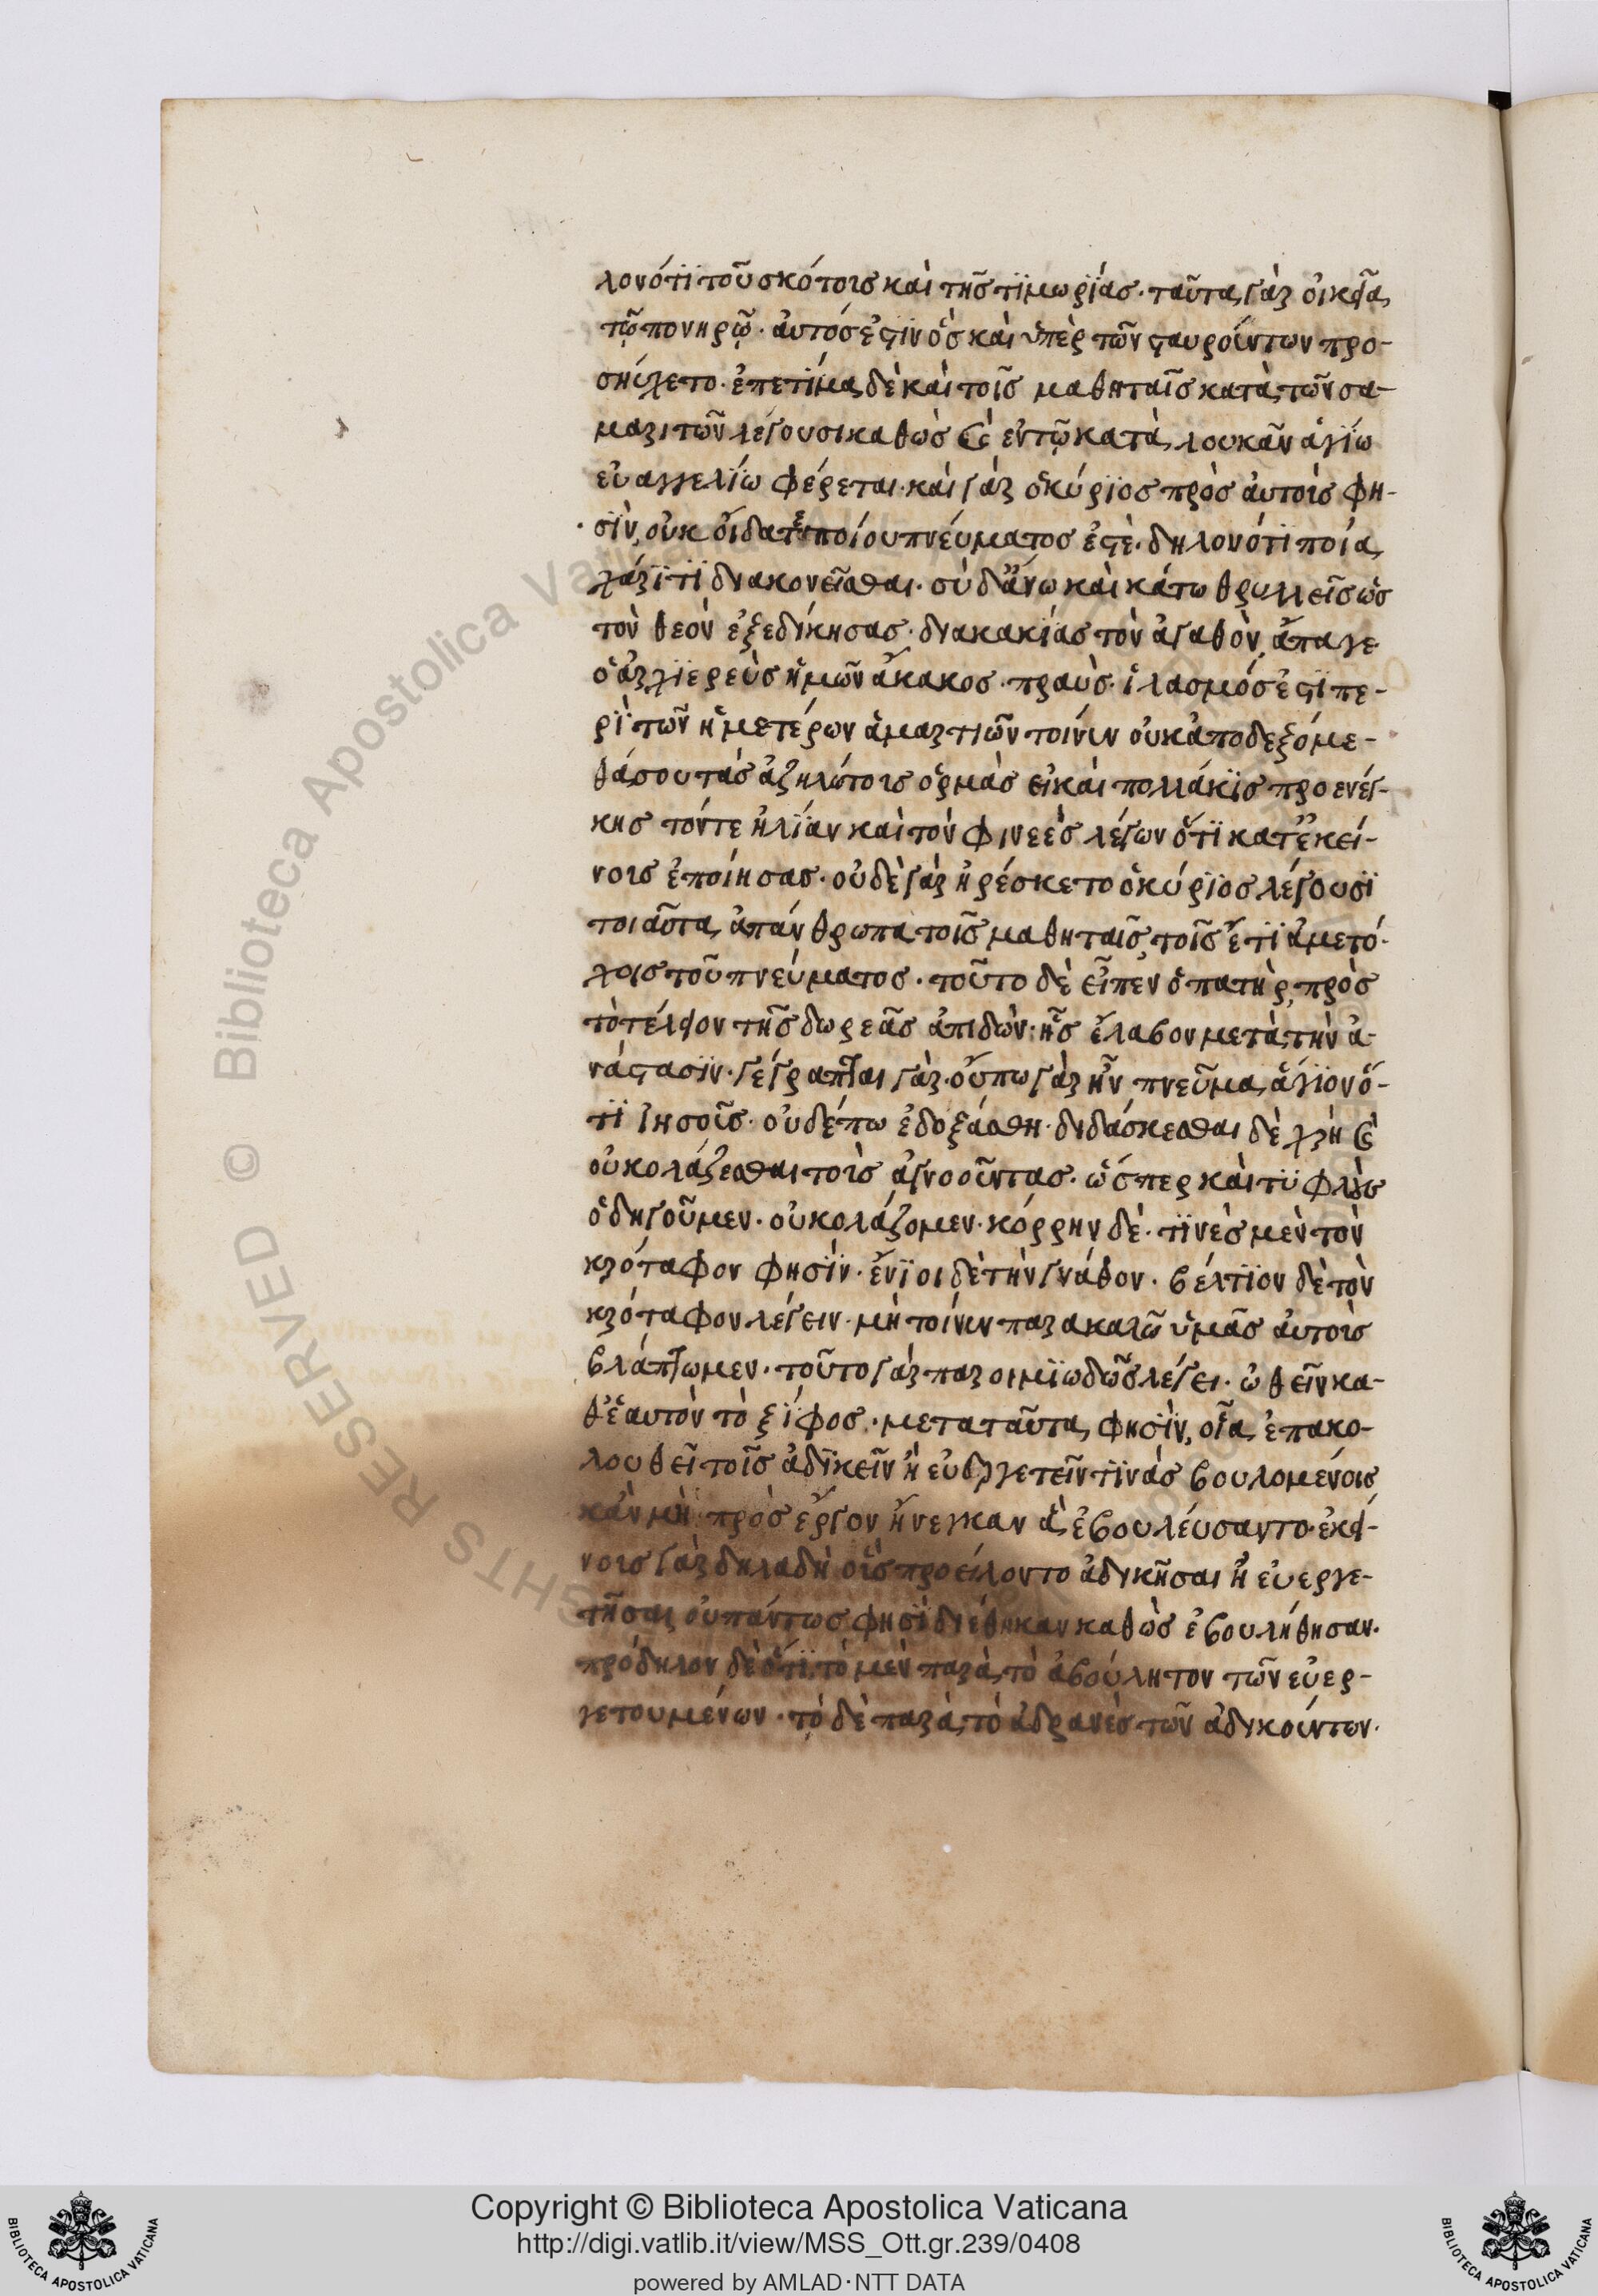 λονότι τοῦ σκότους καὶ τῆς τιμωρίας. ταῦτα γὰρ οἰκεῖα
τῷ πονηρῷ. ἀυτός ἐστιν ὃς καὶ ὑπὲρ τῶν σταυρούντων προ-
σηύχετο. ἐπετίμα δὲ καὶ τοῖς μαθηταῖς κατὰ τῶν σα-
μαριτῶν λέγουσι καθὼς καὶ ἐν τῷ κατὰ λουκᾶν ἁγίω
ευαγγελίω φέρεται. καὶ γὰρ ὁ κύριος πρὸς ἀυτοὺς φη-
σὶν, οὐκ οἴδατε ποίου πνέυματος ἐστὲ. δηλονότι ποία
χάριτι διακονεῖσθαι. σὺ δ' ἄνω καὶ κάτω θρυλλεῖς ὡς
τὸν θεὸν ἐξεδίκησας. διὰ κακίας τὸν ἀγαθὸν, ἄπαγε
ὁ ἀρχιερεὺς ἡμῶν ἄκακος. πραὺς. ἱλασμός ἐστι πε-
ρὶ τῶν ἡμετέρων ἁμαρτιῶν τοίνυν οὐκ ἀποδεξόμε-
θά σου τὰς ἀζηλώτους ὁρμὰς εἰ καὶ πολλάκις προενέγ-
κης τόν τε ἠλίαν καὶ τὸν φινεὲς λέγων ὅτι κατ' ἐκεί-
νους ἐποίησας. οὐδὲ γὰρ ἠρέσκετο ὁ κύριος λέγουσι
τοιαῦτα ἀπάνθρωπα τοῖς μαθηταῖς, τοῖς ἔτι ἀμετό-
χοις τοῦ πνεύματος. τοῦτο δὲ εἶπεν ὁ πατὴρ, πρὸς
τὸ τέλειον τῆς δωρεᾶς ἀπιδὼν. ἧς ἔλαβον μετὰ τὴν ἀ-
νάστασιν. γέγραπται γὰρ. οὔπω γὰρ ἦν πνεῦμα ἅγιον ὅ-
τι ἰησοῦς. οὐδέπω ἐδοξάσθη. διδάσκεσθαι δὲ χρὴ καὶ
οὐ κολάζεσθαι τοὺς ἀγνοοῦντας. ὥσπερ καὶ τυφλοὺς
ὁδηγοῦμεν. οὐ κολάζομεν. κόρρην δὲ. τινὲς μὲν τὸν
κρόταφον φησὶν. ἔνιοι δὲ τὴν γνάθον. βέλτιον δὲ τὸν
κρόταφον λέγειν. μὴ τοίνυν παρακαλῶ ὑμᾶς ἀυτοὺς
βλάπτωμεν. τοῦτο γὰρ παροιμιωδῶς λέγει. ὠθεῖν κα-
θ' ἑαυτὸν τὸ ξίφος. μετα ταῦτα φησὶν, οἷα ἐπακο-
λουθεῖ τοῖς ἀδικεῖν ἢ εὐεργετεῖν τινὰς βουλομένοις
κἂν μὴ πρὸς ἔργον ἤνεγκαν ἃ ἐβουλέυσαντο. ἐκεί-
νους γὰρ δηλαδὴ οἷς προείλοντο ἀδικῆσαι ἢ ἐυεργε-
τῆσαι οὐ πάντως φησὶ διέθηκαν καθὼς ἐβουλήθησαν.
πρόδηλον δὲ ὅτι τὸ μὲν παρὰ τὸ ἀβούλητον τῶν εὐερ-
γετουμένων. τὸ δὲ παρὰ τὸ ἀδρανὲς τῶν ἀδικούντων.
RIGHTS RESERVED © Biblioteca Apostolica Vaticana
Copyright © Biblioteca Apostolica Vaticana
http://digi.vatlib.it/view/MSS_Ott.gr.239/0408
powered by AMLAD·NTT DATA
BIBLIOTECA APOSTOLICA VATICANA
BIBLIOTECA APOSTOLICA VATICANA